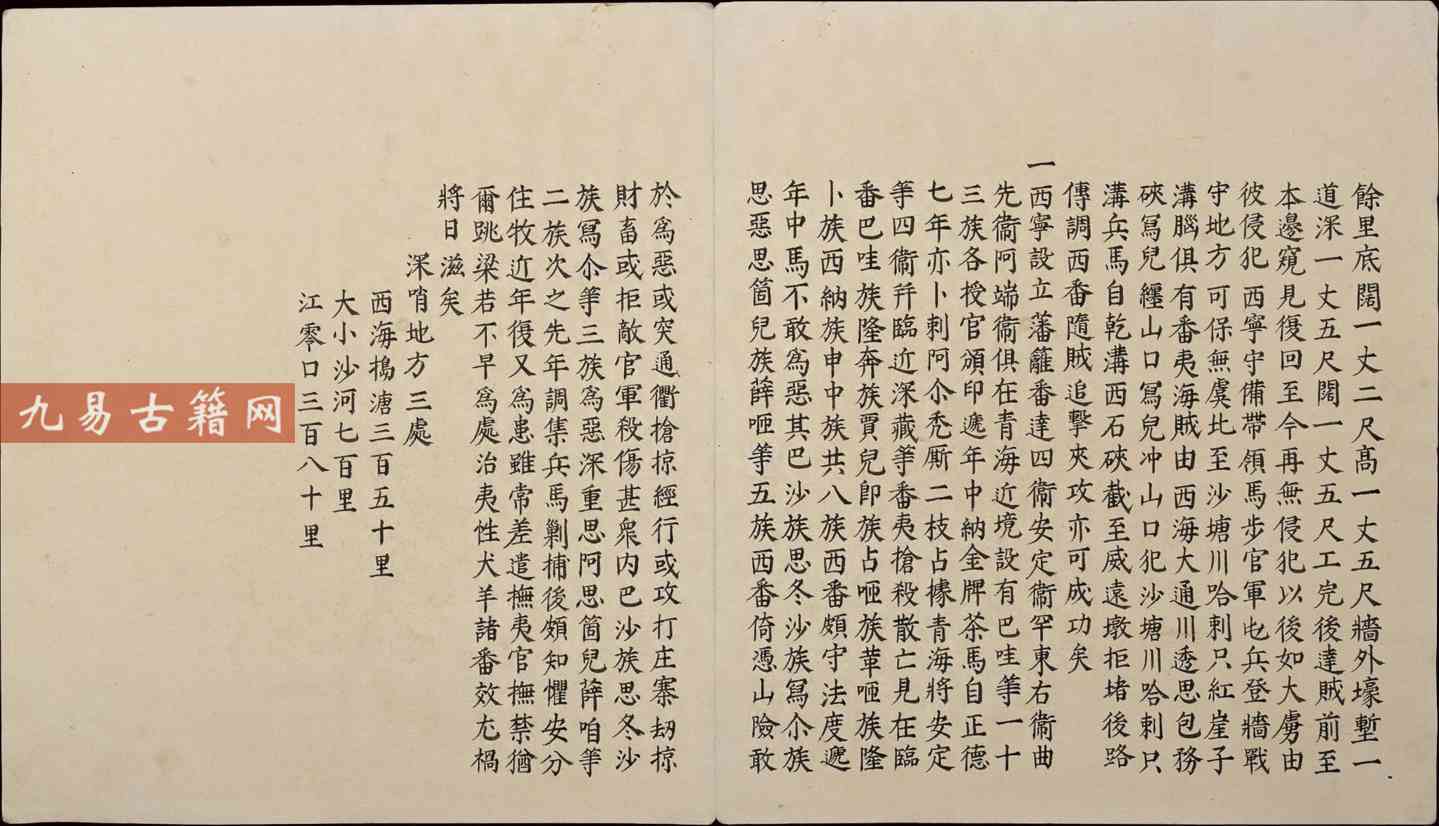 餘里底闊一丈二尺高一丈五尺牆外壕塹一
道深一丈五尺闊一丈五尺工完後達賊前至
本邊窺見復回至今再無侵犯以後如大虜由
彼侵犯西寧守備帶領馬步官軍屯兵登牆戰
守地方可保無虞北至沙塘川哈剌只紅崖子
溝腦俱有番夷海賊由西海大通川透思包務
硤寫兒纒山口寫兒冲山口犯沙塘川哈剌只
溝兵馬自乾溝西石硤截至威遠墩拒堵後路
傳調西番隨賊追擊夾攻亦可成功矣
一西寧設立藩籬番達四衞安定衞罕東右衞曲
先衞阿端衞俱在青海近境設有巴哇等一十
三族各授官頒印遞年中納金牌茶馬自正德
七年亦卜剌阿尒秃厮二枝占據青海將安定
等四衞幷臨近深藏等番夷搶殺散亡見在臨
番巴哇族隆奔族賈兒即族占咂族革咂族隆
卜族西納族申中族共八族西番頗守法度遞
年中馬不敢為惡其巴沙族思冬沙族寫尒族
思惡思箇兒族薛咂等五族西番倚憑山險敢
於為惡或突通衢搶掠經行或攻打庄寨刼掠
財畜或拒敵官軍殺傷甚衆内巴沙族思冬沙
族寫尒等三族為惡深重思阿思箇兒薛咱等
二族次之先年調集兵馬剿捕後頗知懼安分
住牧近年復又為患雖常差遣撫夷官撫禁猶
爾跳梁若不早為處治夷性犬羊諸番效尤禍
將日滋矣
深哨地方三處
西海搗溏三百五十里
大小沙河七百里
江零口三百八十里
九易古籍网